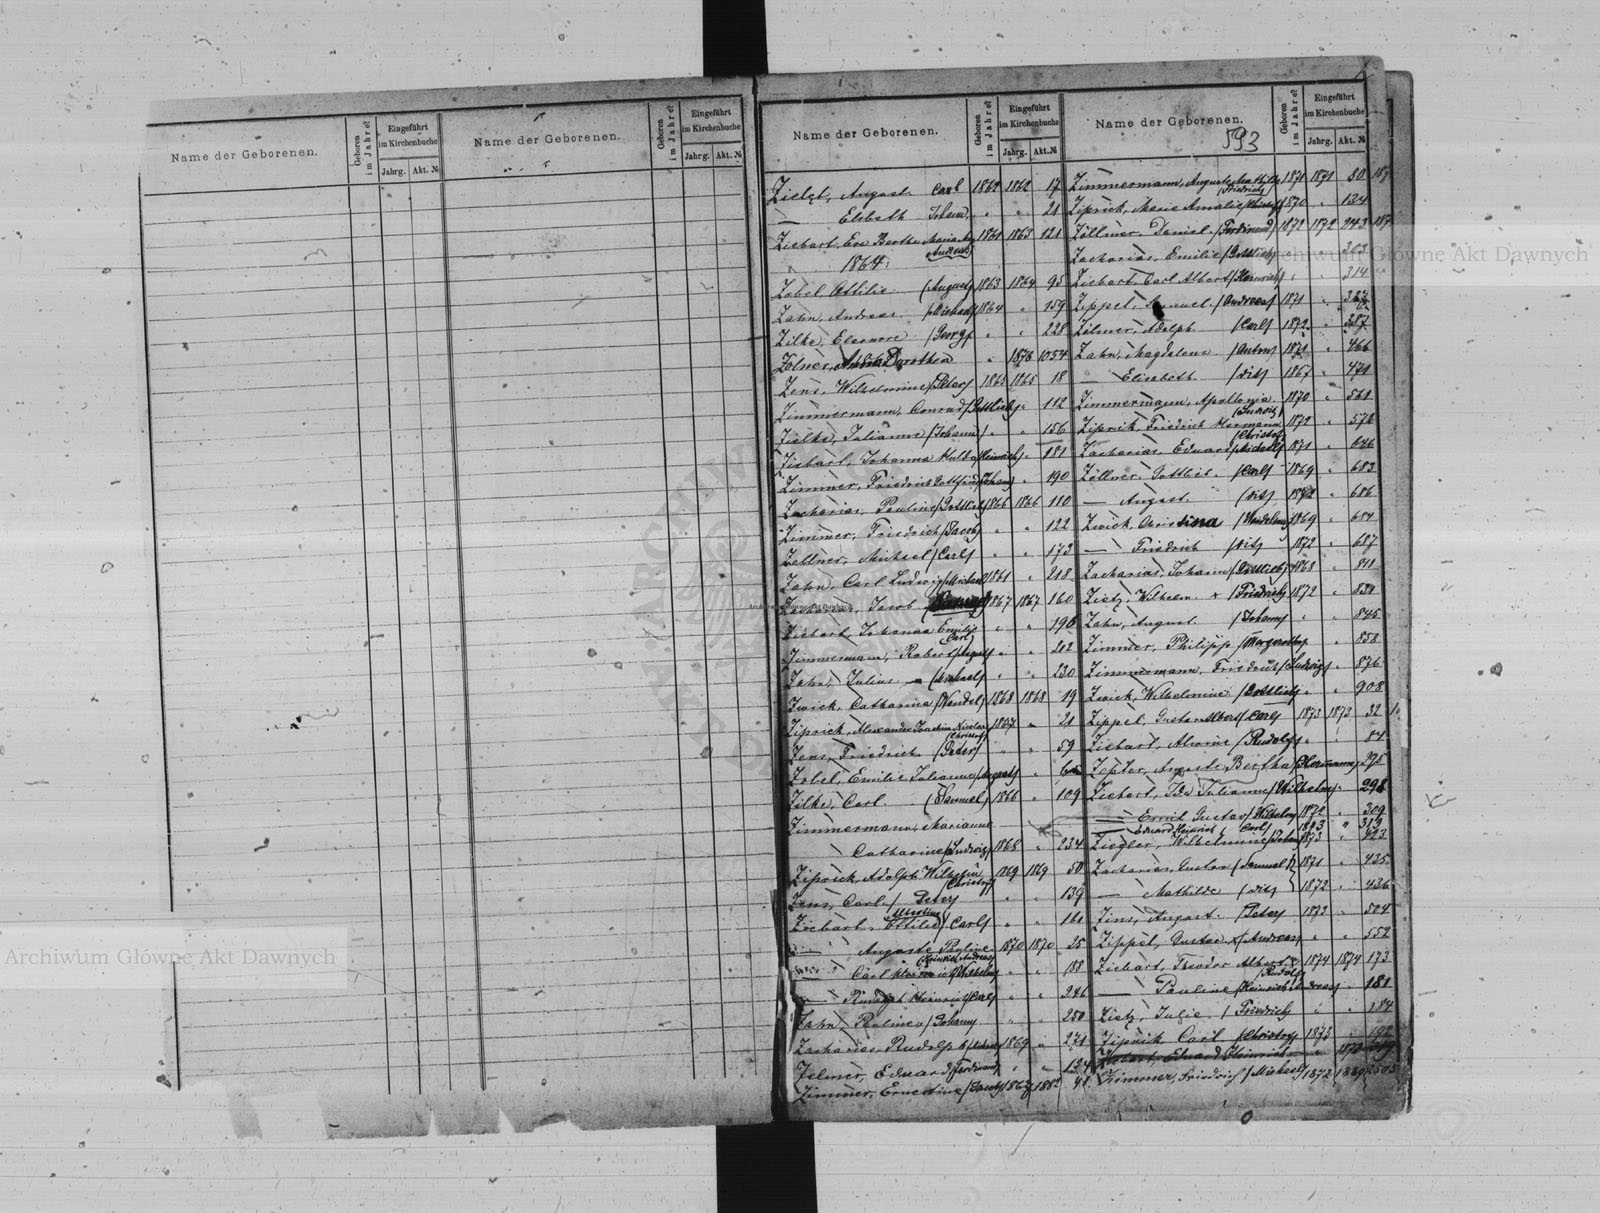 Name der Geborenen.
Geboren im Jahre
Eingeführt im Kirchenbuche
Jahrg.
Akt. №
Name der Geborenen.
Geboren im Jahre
Eingeführt im Kirchenbuche
Jahrg.
Akt. №
Name der Geborenen.
Geboren im Jahre
Eingeführt im Kirchenbuche
Jahrg.
Akt. №
Name der Geborenen.
593
Geboren im Jahre
Eingeführt im Kirchenbuche
Jahrg.
Akt. №
August Carl 1862 1862 17
— Elsbeth 21
Ziebart, Eva Bertha 1861 1863 121
1864
Zobel, Ottilie (August) 1863 1864 95
Zahn, Andreas (Michael) 1864 " 159
Zilke, Eleonore (Georg) " " 228
Dorothea " 1054
Zens, Wilhelmine (Peter) 1865 1865 18
Zimmermann, Conrad (Gottlieb) " 112
Zielke, Julianne (Johann) " " 156
Ziebart, Johanna Hulda (Heinrich) " 181
Zimmer, Friedrich Gottfried (Johann) " 190
Zacharias, Pauline (Gottlieb) 1866 1866 110
Zimmer, Friedrich (Jacob) " " 122
Zellner, Michael (Carl) " " 173
Zahn, Carl Ludwig (Michael) 1861 " 218
Zacharias, Jacob 1867 1867 160
Ziebart, Johanna Emilie (Carl) " " 196
Zimmermann, Robert (August) " " 212
Zahn, Julius (Michael) " " 230
Zwick, Catharina (Wendel) 1868 1868 19
Ziprick, Alexander Joachim Nicolaus (Christof) 1867 " 21
Zens, Friedrich (Peter) " " 59
Zobel, Emilie Julianne (August) "
Zilke, Carl (Samuel) 1866 " 109
Zimmermann, Marianna
Catharine (Ludwig) 1868 " 234
Ziprick, Adolph Wilhelm (Christof) 1869 1869 58
Zens, Carl (Peter) " " 139
Ziebart, Ottilie Albertine (Carl) " " 161
— Auguste Pauline (Heinrich Andreas) 1870 1870 25
— Carl (Wilhelm) " " 188
— Rudolph Heinrich (Carl) " " 226
Zahn, Pauline (Johann) " " 250
Zacharias, Rudolph 1869 " 271
Zelmer, Eduard (Ferdinand) " "
Zimmer, Ernestine (Jacob) 1867 1882 41
Zimmermann, Auguste Mathilde (Friedrich) 1871 1871 80
Ziprick, Marie Amalie (Christof) 1870 " 134
Zöllmer, Daniel (Ferdinand) 1872 1872 243
Zacharias, Emilie (Gottlieb) " " 303
Ziebart, Carl Albert (Heinrich) " " 314
Zippel, Samuel (Andreas) 1871 "
Zöllmer, Adolph (Carl) 1872 " 387
Zahn, Magdalena (Anton) 1871 " 466
— Elisabeth (dito) 1867 " 471
Zimmermann, Apollonia (Ludwig) 1870 " 561
Ziprick, Friedrich Hermann (Christof) 1872 " 572
Zacharias, Eduard (Michael) 1871 " 646
Zöllner, Gottlieb (Carl) 1869 " 683
— August (dito) 1872 " 686
Zwick, Christina (Wendelin) 1869 " 654
— Friedrich (dito) 1872 " 687
Zacharias, Johann (Gottlieb) 1868 " 811
Zietz, Wilhelm (Friedrich) 1872 "
Zahn, August (Johann) " " 845
Zimmer, Philipp " 858
Zimmermann, Friedrich (Ludwig) " 876
Zwick, Wilhelmine (Gottlieb) " " 908
Zippel, Gustav Albert (Carl) 1873 1873 32
Ziebart, Alwine (Rudolf) " " 84
Zepter, Auguste Bertha (Hermann) " 295
Ziebart, Ida Julianna (Wilhelm) " 298
— Emil Gustav (Wilhelm) 1872 " 309
— Eduard Heinrich (Carl) 1873 " 319
Ziegler, Wilhelmine (Johann) 1873 " 423
Zacharias, Gustav (Samuel) 1871 " 435
— Mathilde (dito) 1872 " 436
Zins, August (Peter) 1873 " 504
Zippel, Gustav (Andreas) " " 552
Ziebart, Theodor Albert (Rudolf) 1874 1874 173
— Pauline (Heinrich Andreas) " 181
Zietz, Julie (Friedrich) " " 184
Ziprick, Carl (Christof) 1873 " 192
Eduard Heinrich
Zimmer, Friedrich (Michael) 1872
Archiwum Główne Akt Dawnych
Archiwum Główne Akt Dawnych